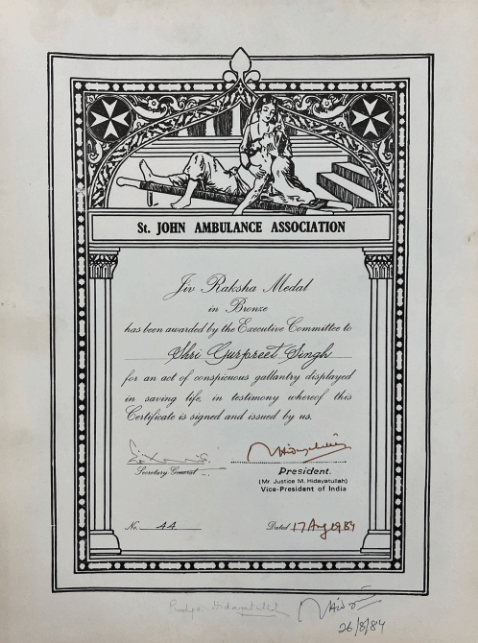 St. JOHN AMBULANCE ASSOCIATION
Jiv Raksha Medal
in Bronze
has been awarded by the Executive Committee to
Shri Gurpreet Singh
for an act of conspicuous gallantry displayed
in saving life, in testimony whereof this
Certificate is signed and issued by us.
Secretary General
President.
(Mr. Justice M. Hidayatullah)
Vice-President of India
No. 44 Dated 17 Aug 1984
Hidayatullah
26/8/84